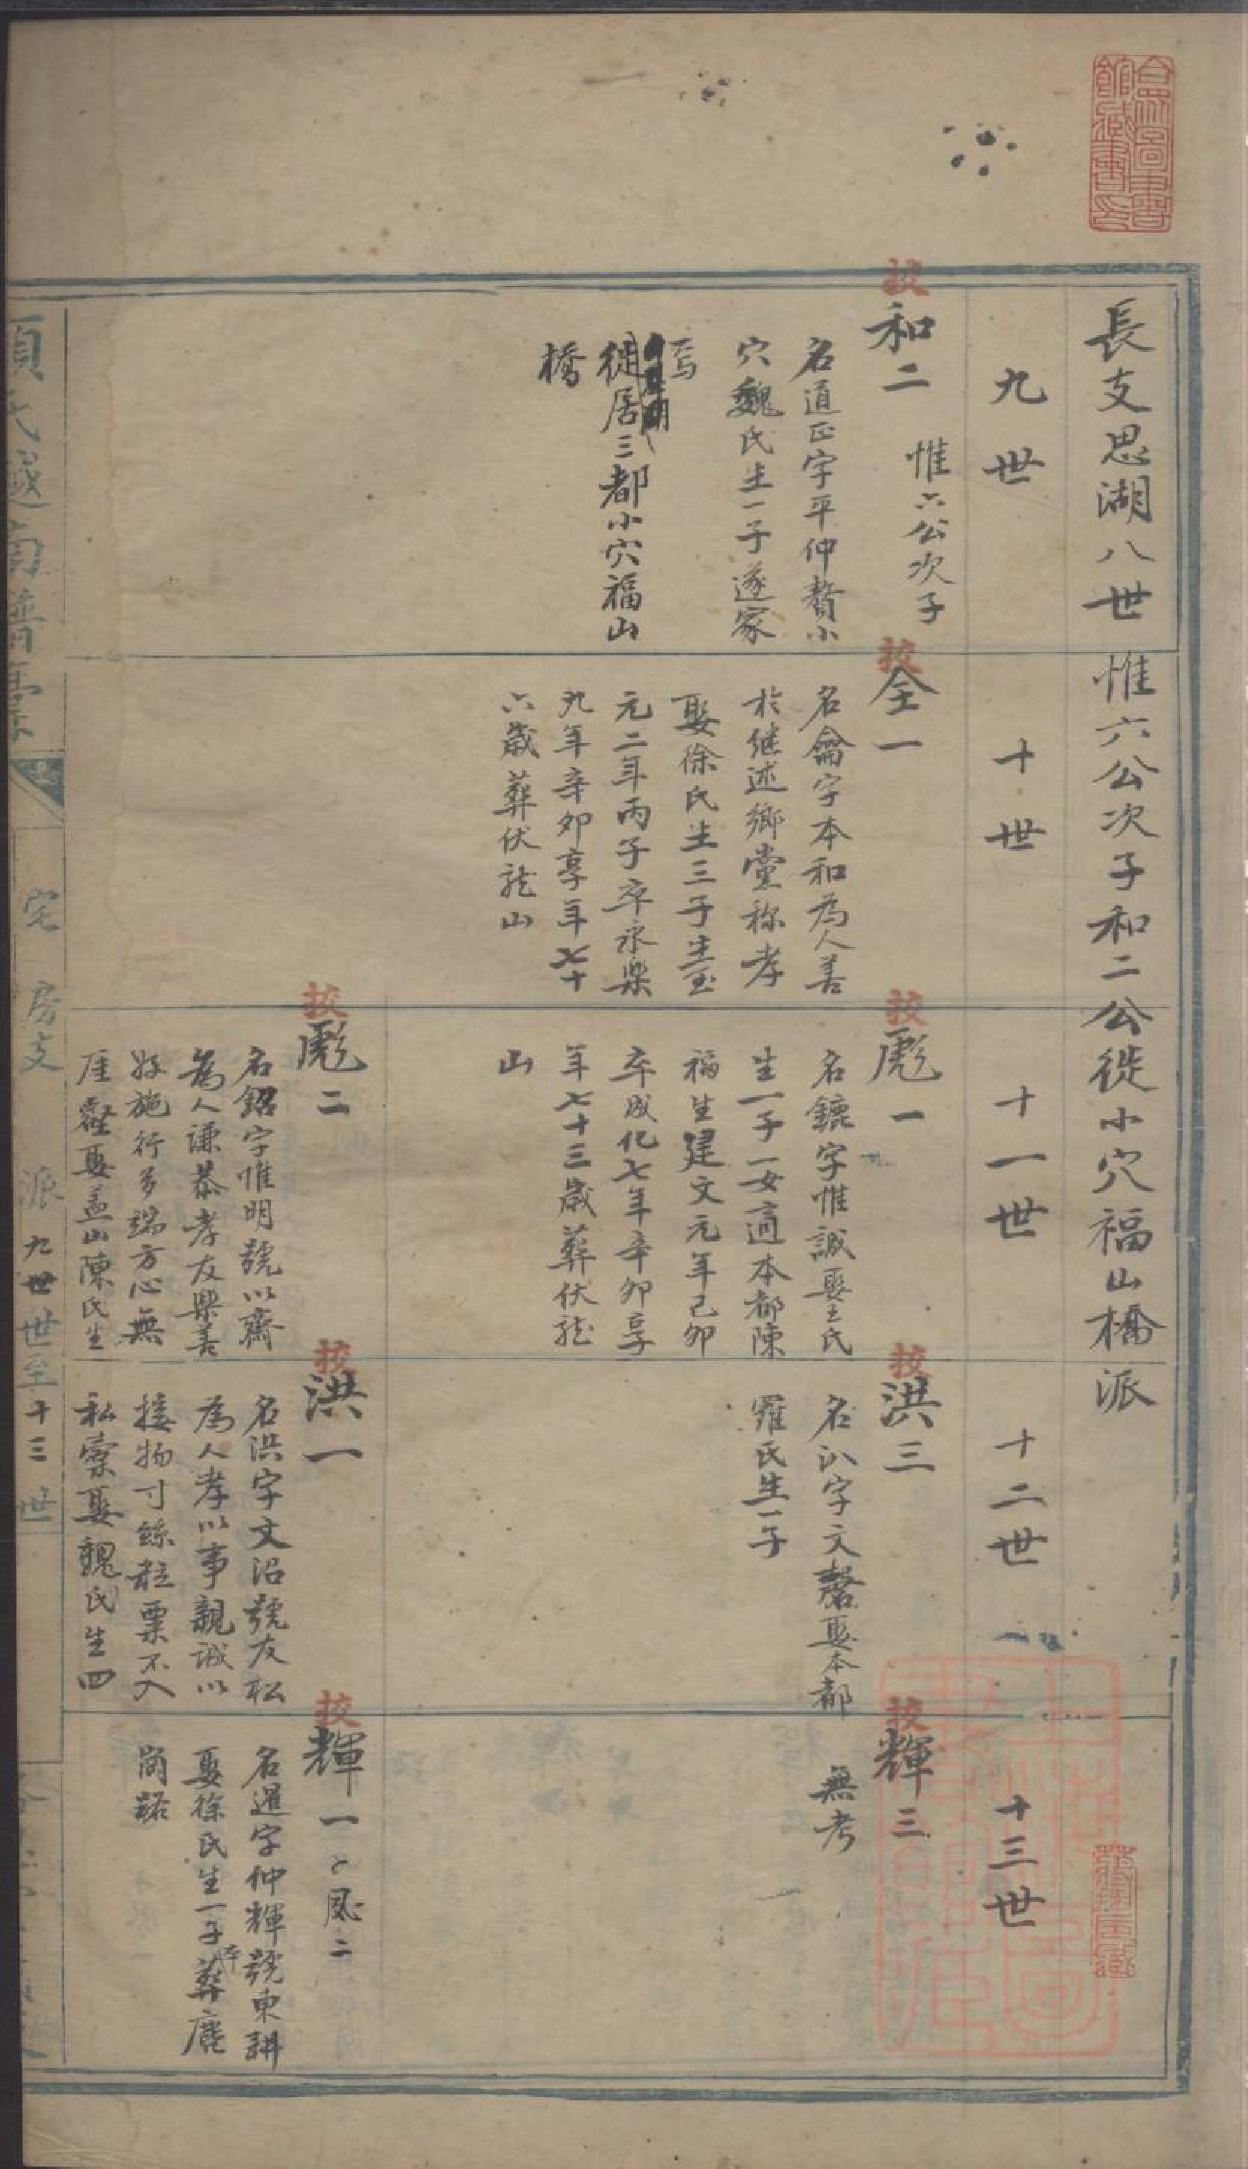 長支思湖八世惟六公次子和二公徙小穴福山橋派
九世
十世
十一世
十二世
十三世
校
和二
惟六公次子
名道正字平仲贅小
穴魏氏生一子遂家
焉
徙居三都小穴福山
橋
校
全一
名侖字本和為人善
於继述鄉黨称孝
娶徐氏生三子生至
元二年丙子卒永樂
九年辛卯享年七十
六歲葬伏龍山
校
彪一
名鑣字惟誠娶王氏
生一子一女適本都陳
福生建文元年己卯
卒成化七年辛卯享
年七十三歲葬伏龍
山
校
彪二
名鉊字惟明號以齋
為人謙恭孝友樂善
好施行多端方心無
厓壑娶孟山陳氏生
校
洪三
名汃字文磬娶本都
羅氏生一子
校
洪一
名洪字文沼號友松
為人孝以事親誠以
接物寸絲粒粟不入
私橐娶魏氏生四
校
輝三
無考
校
輝一
風二
名暹字仲輝號東耕
娶徐氏生一子卒葬鹿
崗路
項氏越南譜稾
宅 房支 派九世世至十三世